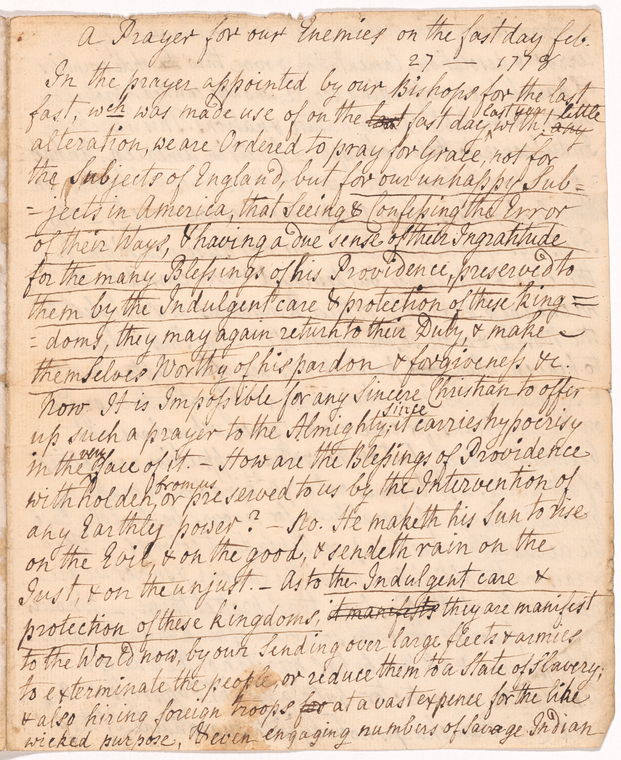 a Prayer for our Enemies on the fast day feb.
27 — 1778
In the prayer appointed by our Bishops for the last
fast, wch was made use of on the last fast day, last year with little any
alteration, we are Ordered to pray for Grace, not for
the Subjects of England, but for our unhappy Sub=
=jects in America, that Seeing & Confessing the Error
of their Ways, & having a due sense of their Ingratitude
for the many Blessings of his Providence, preserved to
them by the Indulgent care & protection of these king=
=doms, they may again return to their Duty, & make
themselves Worthy of his pardon & forgiveness &c.
Now It is Impossible for any Sincere Christian to offer
up such a prayer to the Almighty, since it carries hypocrisy
in the very face of it. — How are the Blessings of Providence
withholden, from us or preserved to us by the Intervention of
any Earthly power? — No. He maketh his Sun to rise
on the Evil, & on the good, & sendeth rain on the
Just, & on the unjust. — As to the Indulgent care &
protection of these kingdoms, it manifests they are manifest
to the World now, by our Sending over large fleets & armies
to exterminate the people, or reduce them to a State of Slavery;
& also hiring foreign troops for at a vast expence for the like
wicked purpose, & even engaging numbers of Savage Indian